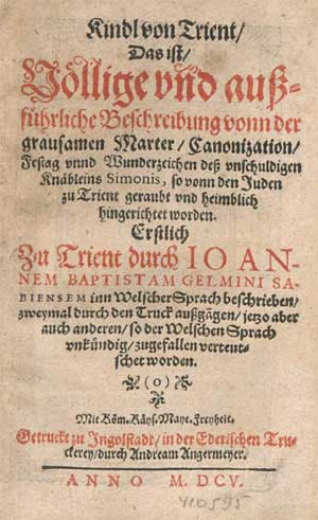 Kindl von Trient/
Das ist/
Völlige vnd auß-
führliche Beschreibung vonn der
grausamen Marter/Canonization/
Festag vnnd Wunderzeichen deß vnschuldigen
Knäbleins Simonis, so vonn den Juden
zu Trient geraubt vnd heimblich
hingerichtet worden.
Erstlich
Zu Trient durch IOAN-
NEM BAPTISTAM GELMINI SA-
BIENSEM inn Welscher Sprach beschrieben/
zweymal durch den Truck außgägen/jetzo aber
auch anderen/so der Welschen Sprach
vnkündig/zugefallen verteut-
schet worden.
(o)
Mit Röm. Käys. Maye. Freyheit.
Getruckt zu Ingolstadt/in der Ederischen Tru-
ckerey/durch Andream Angermeyer.
ANNO M. DCV.
410595